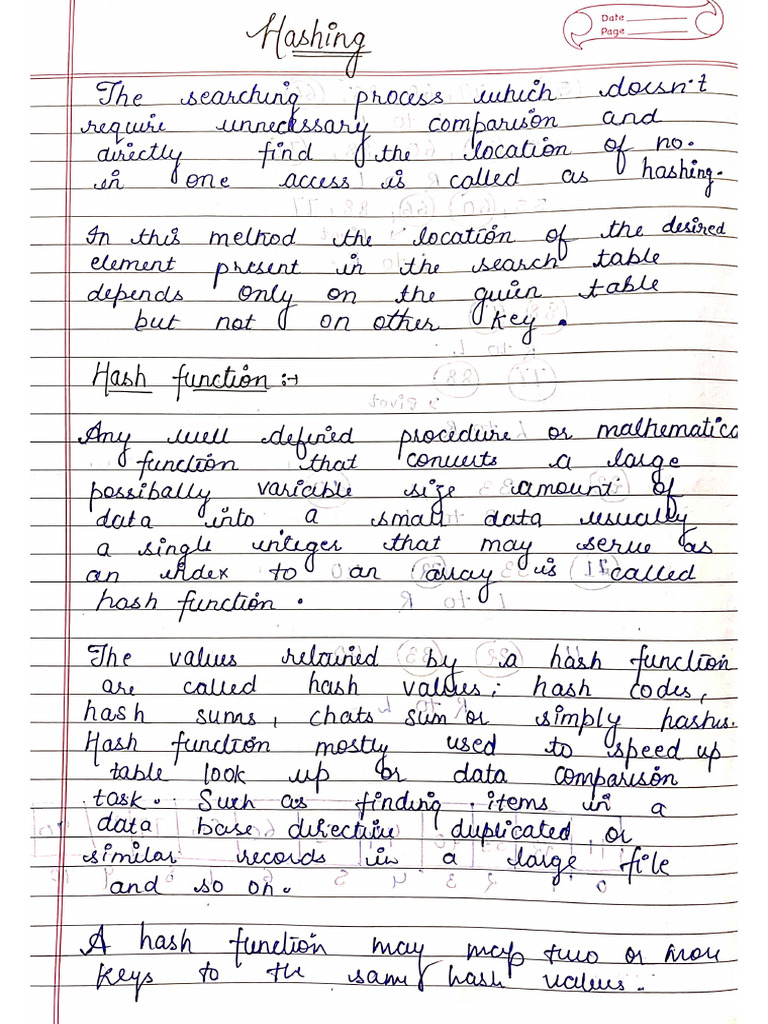 Hashing
Date
Page
The searching process which doesn't
require unneckssary comparison and
directly find the location of no.
in one access is called as hashing.
In this method the location of the desired
element present in the search table
depends only on the given table
but not on other key.
Hash function :→
Any well defined procedure or mathematica
function that converts a large
possibally variable size amount of
data into a small data usually
a single integer that may serve as
an index to an array is called
hash function.
The values retained by a hash function
are called hash values; hash codes,
hash sums, chats sum or simply hashes.
Hash function mostly used to speed up
table look up or data comparison
task. Such as finding items in a
data base directive duplicated or
similar records in a large file
and so on.
A hash function may map two or more
keys to the same hash values.